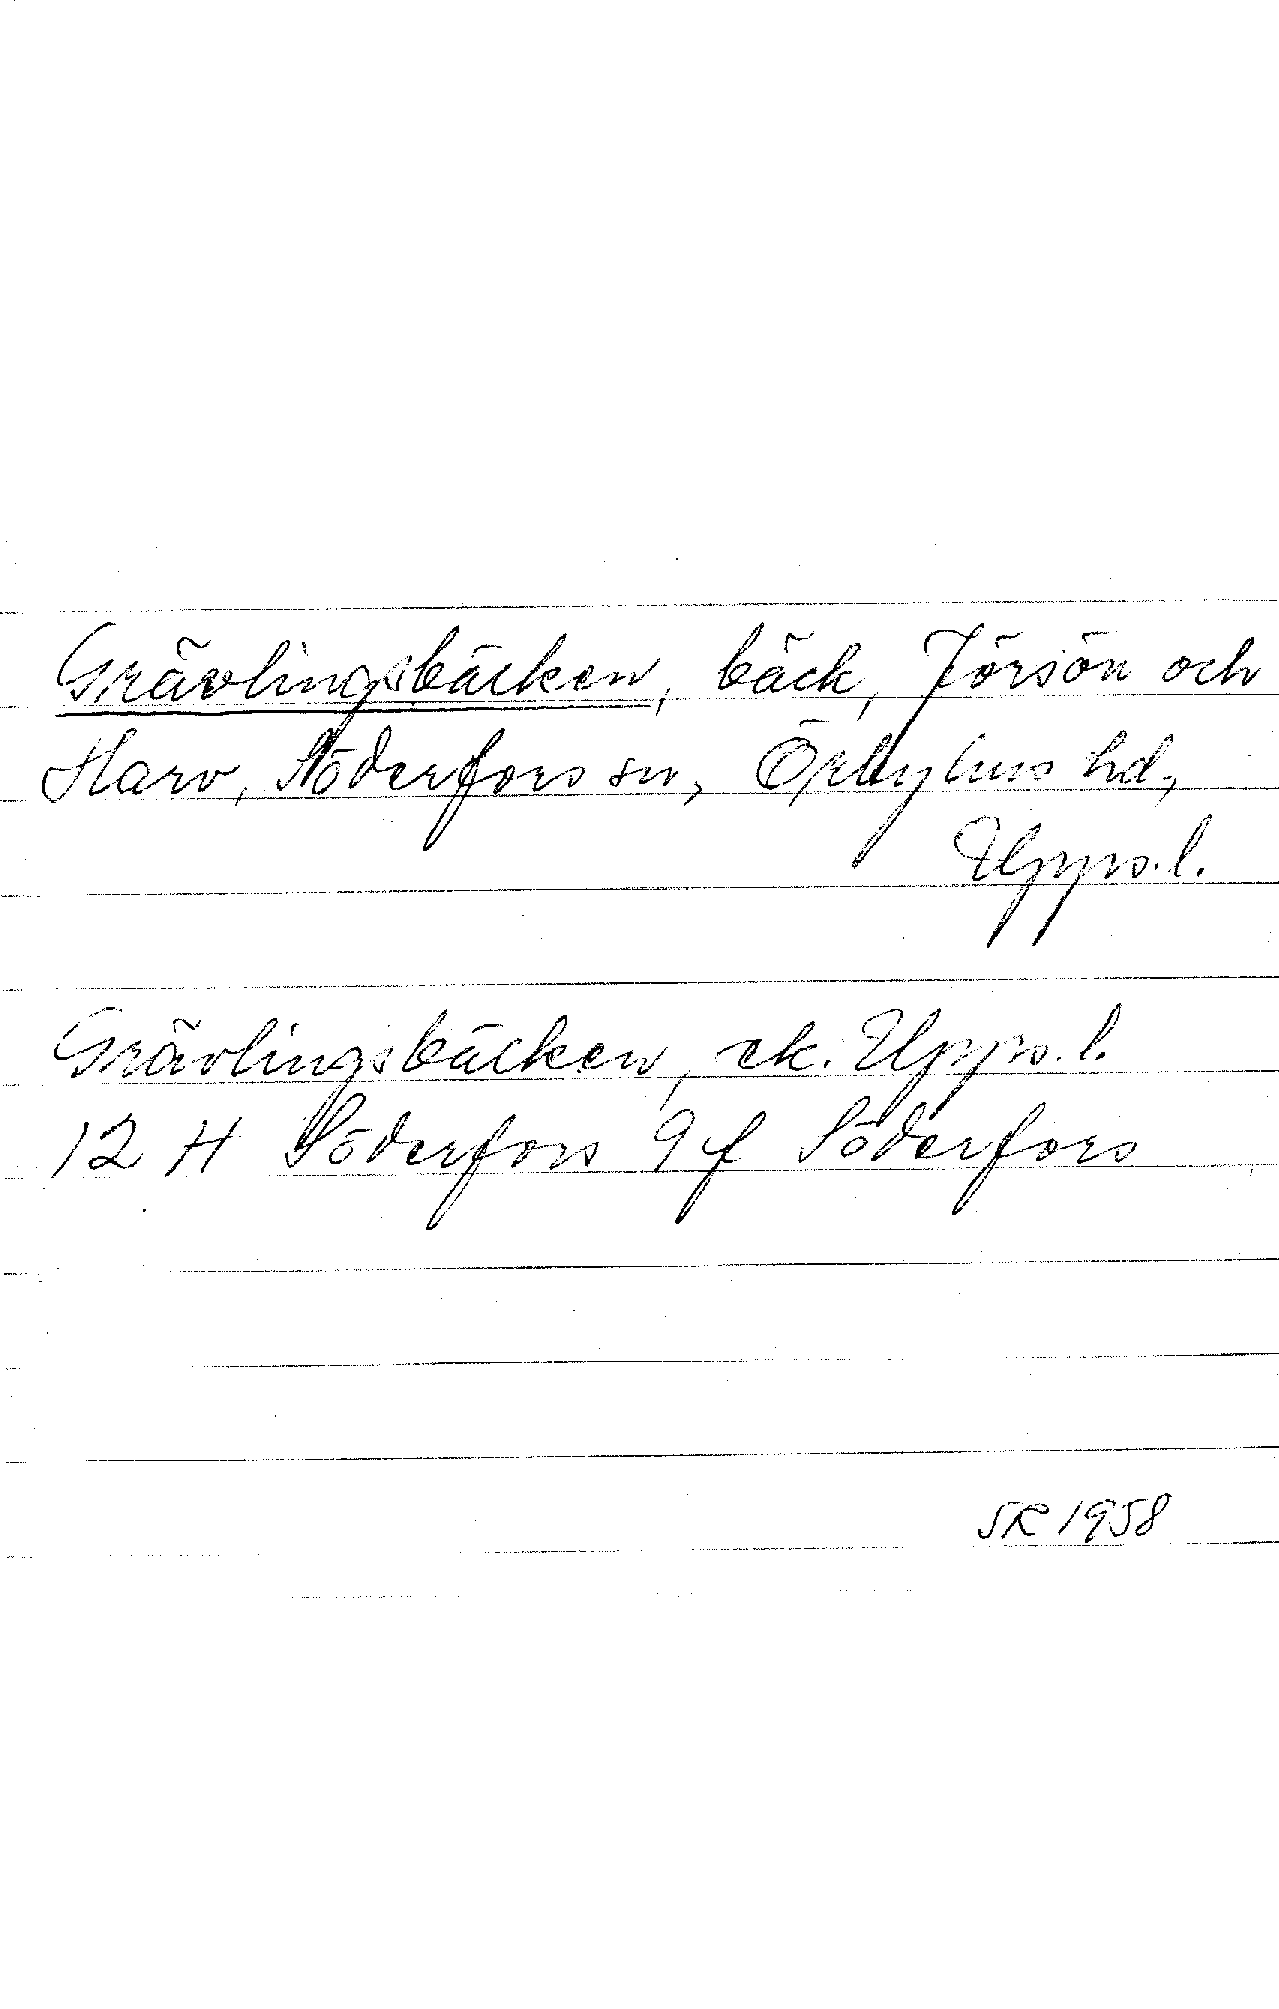 Grävlingsbäcken, bäck, Jörsön och
Harv, Söderfors sn, Örbyhus hd,
Upps.l.
Grävlingsbäcken, ek. Upps.l.
12 H Söderfors 9f Söderfors
SR 1958